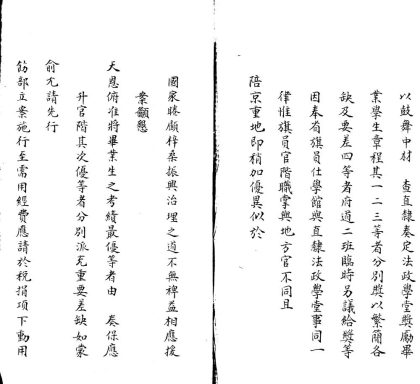 以鼓舞中材 查直隸奏定法政學堂獎勵畢
業學生章程其一二三等者分別獎以繁簡各
缺及要差四等者府道二班臨時另議給獎等
因奉省旗員仕學館與直隸法政學堂事同一
律惟旗員官階職掌與地方官不同且
陪京重地即稍加優異似於
國家睠顧梓桑振興治理之道不無裨益相應援
案籲懇
天恩俯准將畢業生之考績最優等者由 奏保應
升官階其次優等者分別派充重要差缺如蒙
俞允請先行
飭部立案施行至需用經費應請於稅捐項下動用